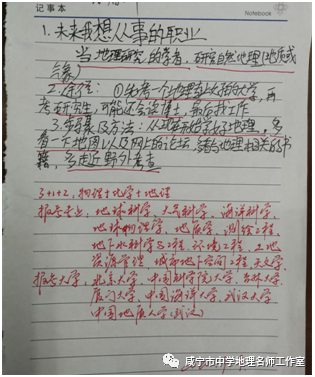 记事本
Notebook
1.未来我想从事的职业
当地理研究的学者，研究自然地理(地质或
气象)
2.途径：①先考一个地理专业好的大学，再
考研究生，可能还会读博士，再后找工作
3.步骤及方法：从现在开始学好地理，多
看一下地图以及网上的论坛，多看与地理相关的书
籍，多走近野外考查
3+1+2，物理+化学+地理
报考专业，地球科学，大气科学，海洋科学，
地球物理学，地质学，测绘工程，
地下水科学与工程，环境工程，土地
资源管理，城市地下空间工程，天文学，
报考大学，北京大学，中国科学院大学，吉林大学，
厦门大学，中国海洋大学，武汉大学
中国地质大学(武汉)
咸宁市中学地理名师工作室